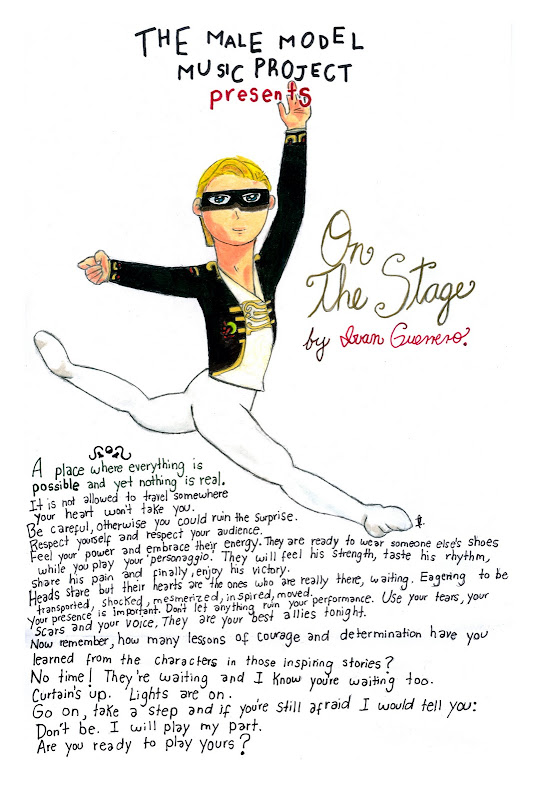 THE MALE MODEL
MUSIC PROJECT
presents
On
The Stage
by Ivan Guerrero.
A place where everything is
possible and yet nothing is real.
It is not allowed to travel somewhere
your heart won't take you.
Be careful, otherwise you could ruin the surprise.
Respect yourself and respect your audience.
Feel your power and embrace their energy. They are ready to wear someone else's shoes
while you play your "personaggio". They will feel his strength, taste his rhythm,
share his pain and finally, enjoy his victory.
Heads stare but their hearts are the ones who are really there, waiting. Eagering to be
transported, shocked, mesmerized, inspired, moved.
Your presence is important. Don't let anything ruin your performance. Use your tears, your
scars and your voice, They are your best allies tonight.
Now remember, how many lessons of courage and determination have you
learned from the characters in those inspiring stories?
No time! They're waiting and I know you're waiting too.
Curtain's up. Lights are on.
Go on, take a step and if you're still afraid I would tell you:
Don't be. I will play my part.
Are you ready to play yours?